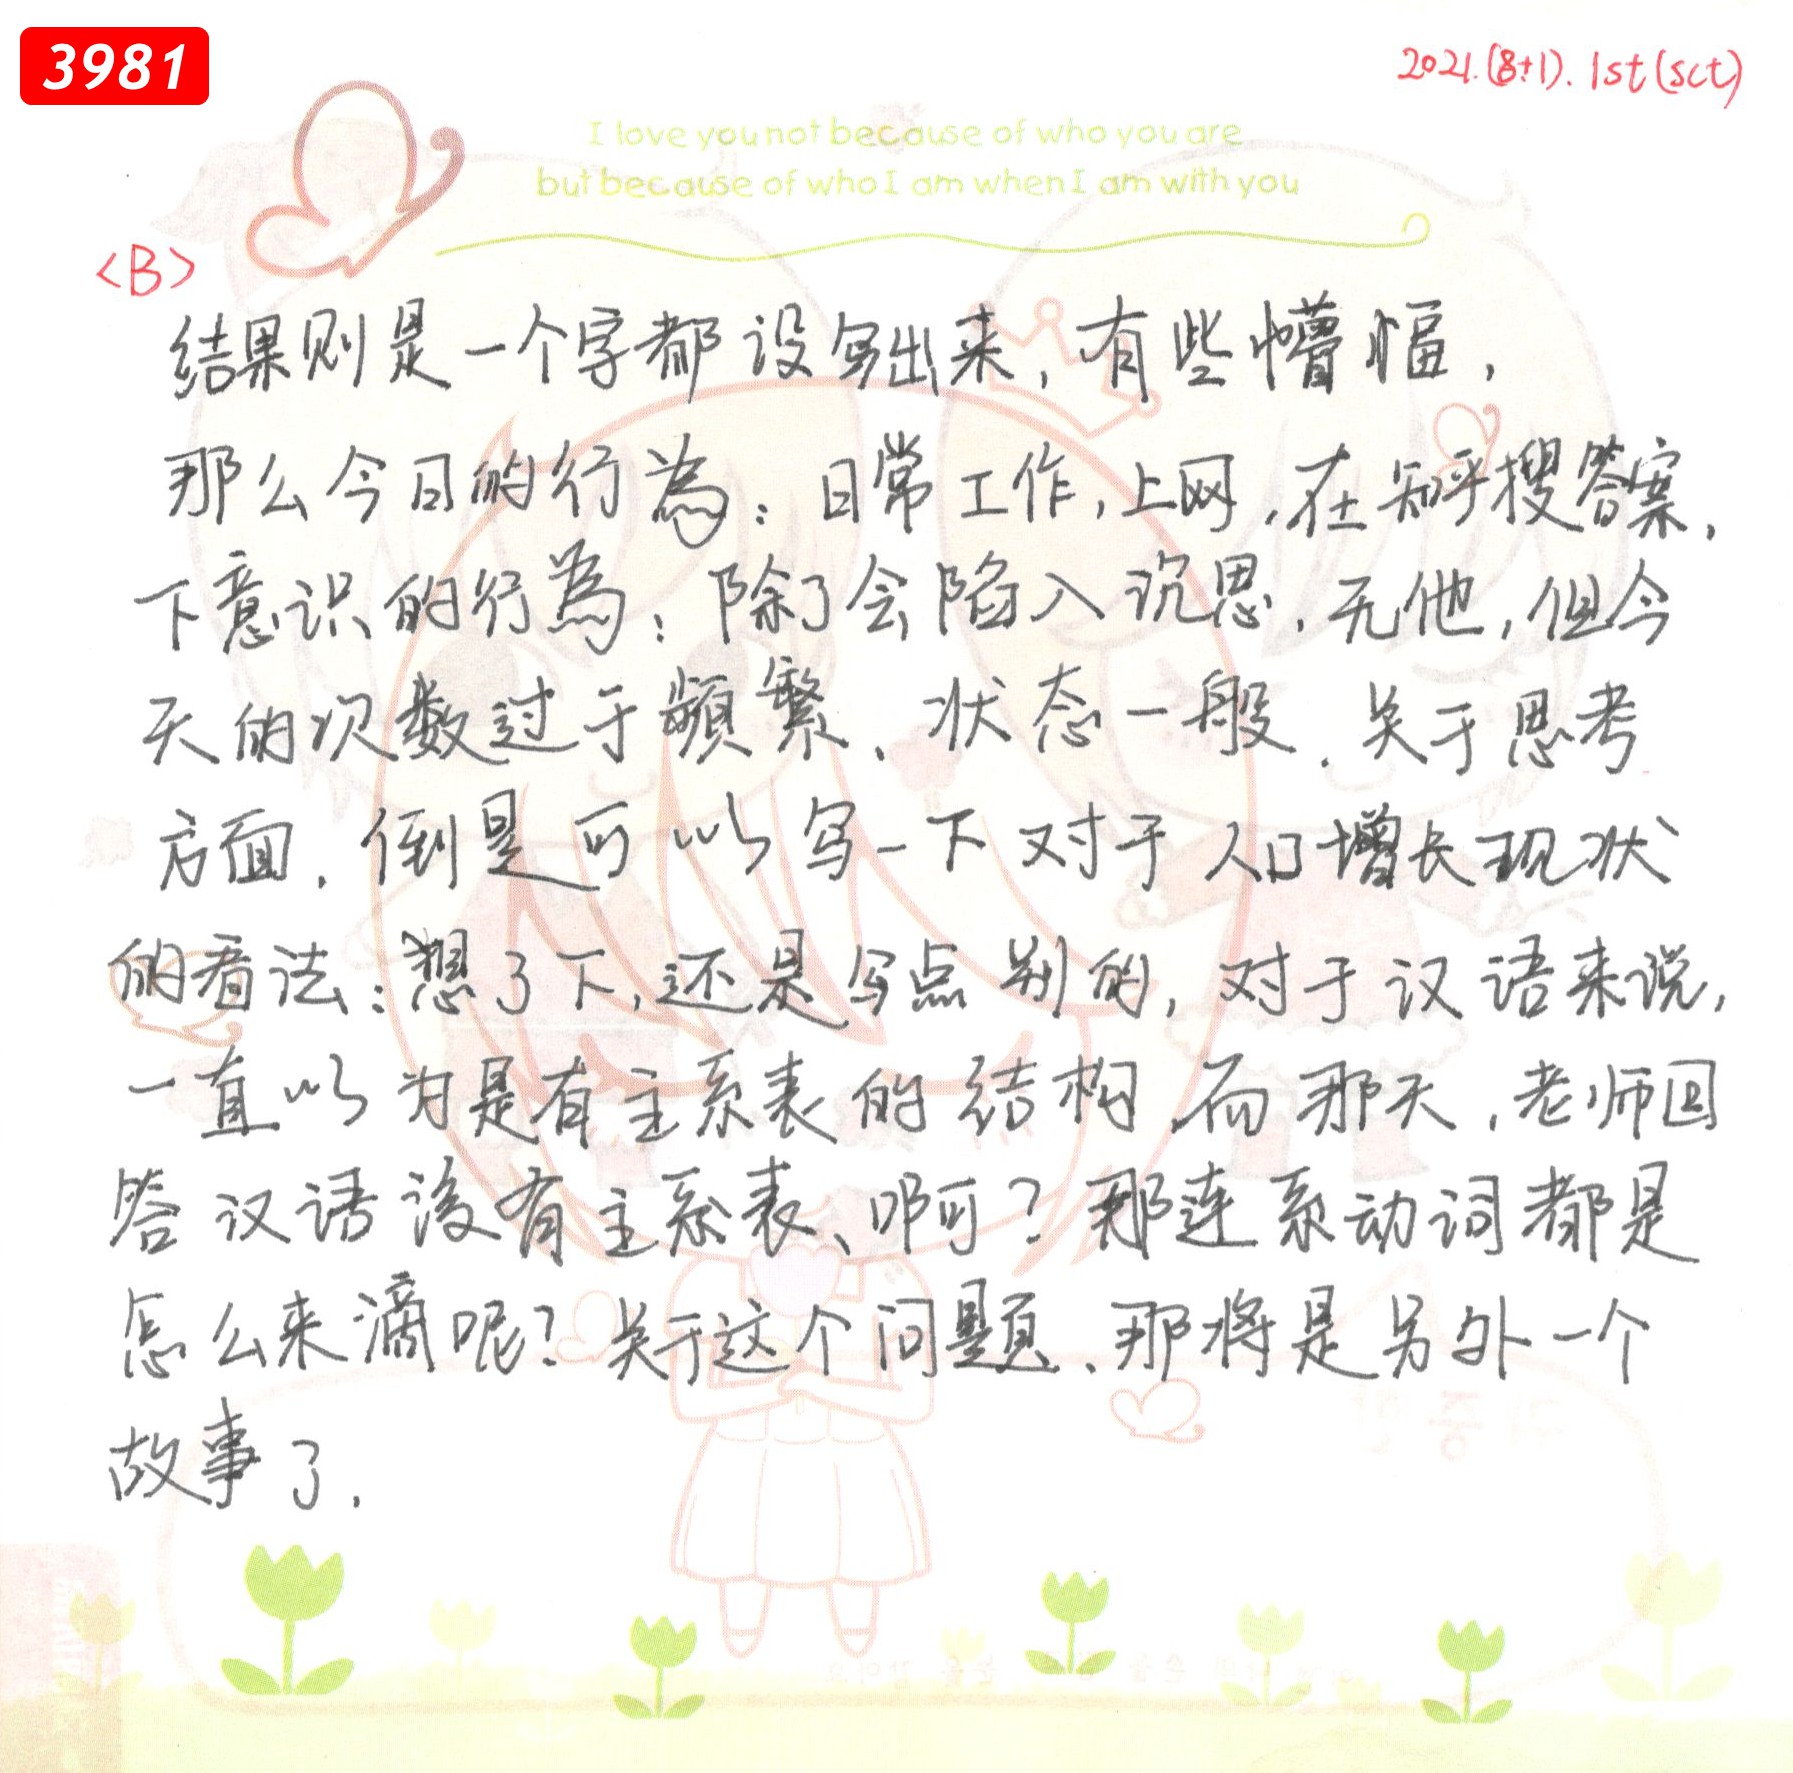 3981
2021.(8+1). 1st(sct)
I love you not because of who you are
but because of who I am when I am with you
<B>
结果则是一个字都没写出来，有些懵愊，
那么今日的行為：日常工作，上网，在知乎搜答案，
下意识的行為：除了会陷入沉思，无他，但今
天的次数过于頻繁、状态一般．关于思考
方面，倒是可以写一下对于人口增长现状
的看法：想了下，还是写点别的，对于汉语来说，
一直以为是有主系表的结构，而那天，老师回
答汉语没有主系表、啊？那连系动词都是
怎么来滴呢？关于这个问题、那将是另外一个
故事了．